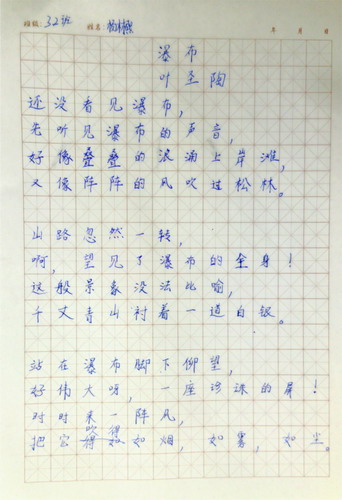 班级: 32班 姓名: 年 月 日
瀑布
叶圣陶
还没看见瀑布,
先听见瀑布的声音,
好像叠叠的浪涌上岸滩,
又像阵阵的风吹过松林。
山路忽然一转,
啊, 望见了瀑布的全身!
这般景象没法比喻,
千丈青山衬着一道白银。
站在瀑布脚下仰望,
好伟大呀, 一座珍珠的屏!
时时来一阵风,
吹得
把它如烟, 如雾, 如尘。